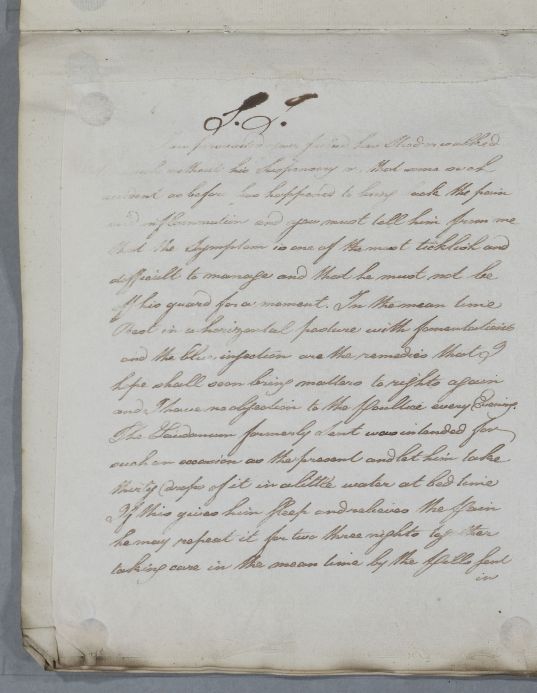 S. T.
I am persuaded your friend has Rhode or walked
much without his Suspensory or that some such
accident as before has happened to bring back the pain
and inflammation and you must tell him from me
that the Symptom is one of the most ticklish and
difficult to manage and that he must not be
off his guard for a moment. In the mean time
Rest in a horizontal posture with fomentations
and the blue injection are the remedies that I
hope shall soon bring matters to rights again
and I have no objection to the Poultice every Evening.
The Laudanum formerly Sent was intended for
such an occasion as the present and let him take
thirty Drops of it in a little water at bed time
If this gives him Sleep and relieves the Pain
he may repeat it for two three nights together
taking care in the mean time by the Pills Sent
in